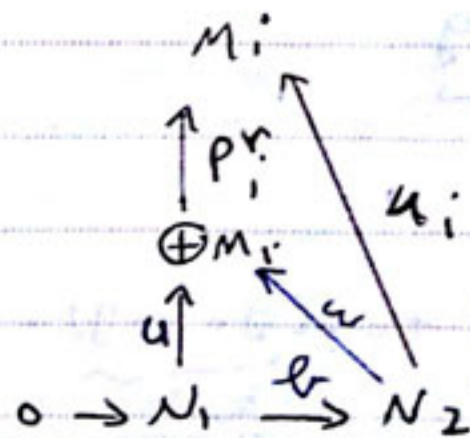 Mi
Pri
ui
⊕Mi
u
w
0 → N1 → N2
b